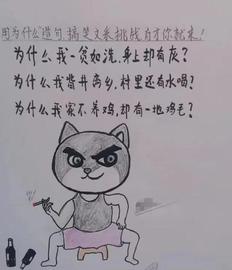 用为什么造句,搞笑文来挑战有才你就来!
为什么我一贫如洗,身上却有灰?
为什么我背井离乡,村里还有水喝?
为什么我家不养鸡,却有一地鸡毛?